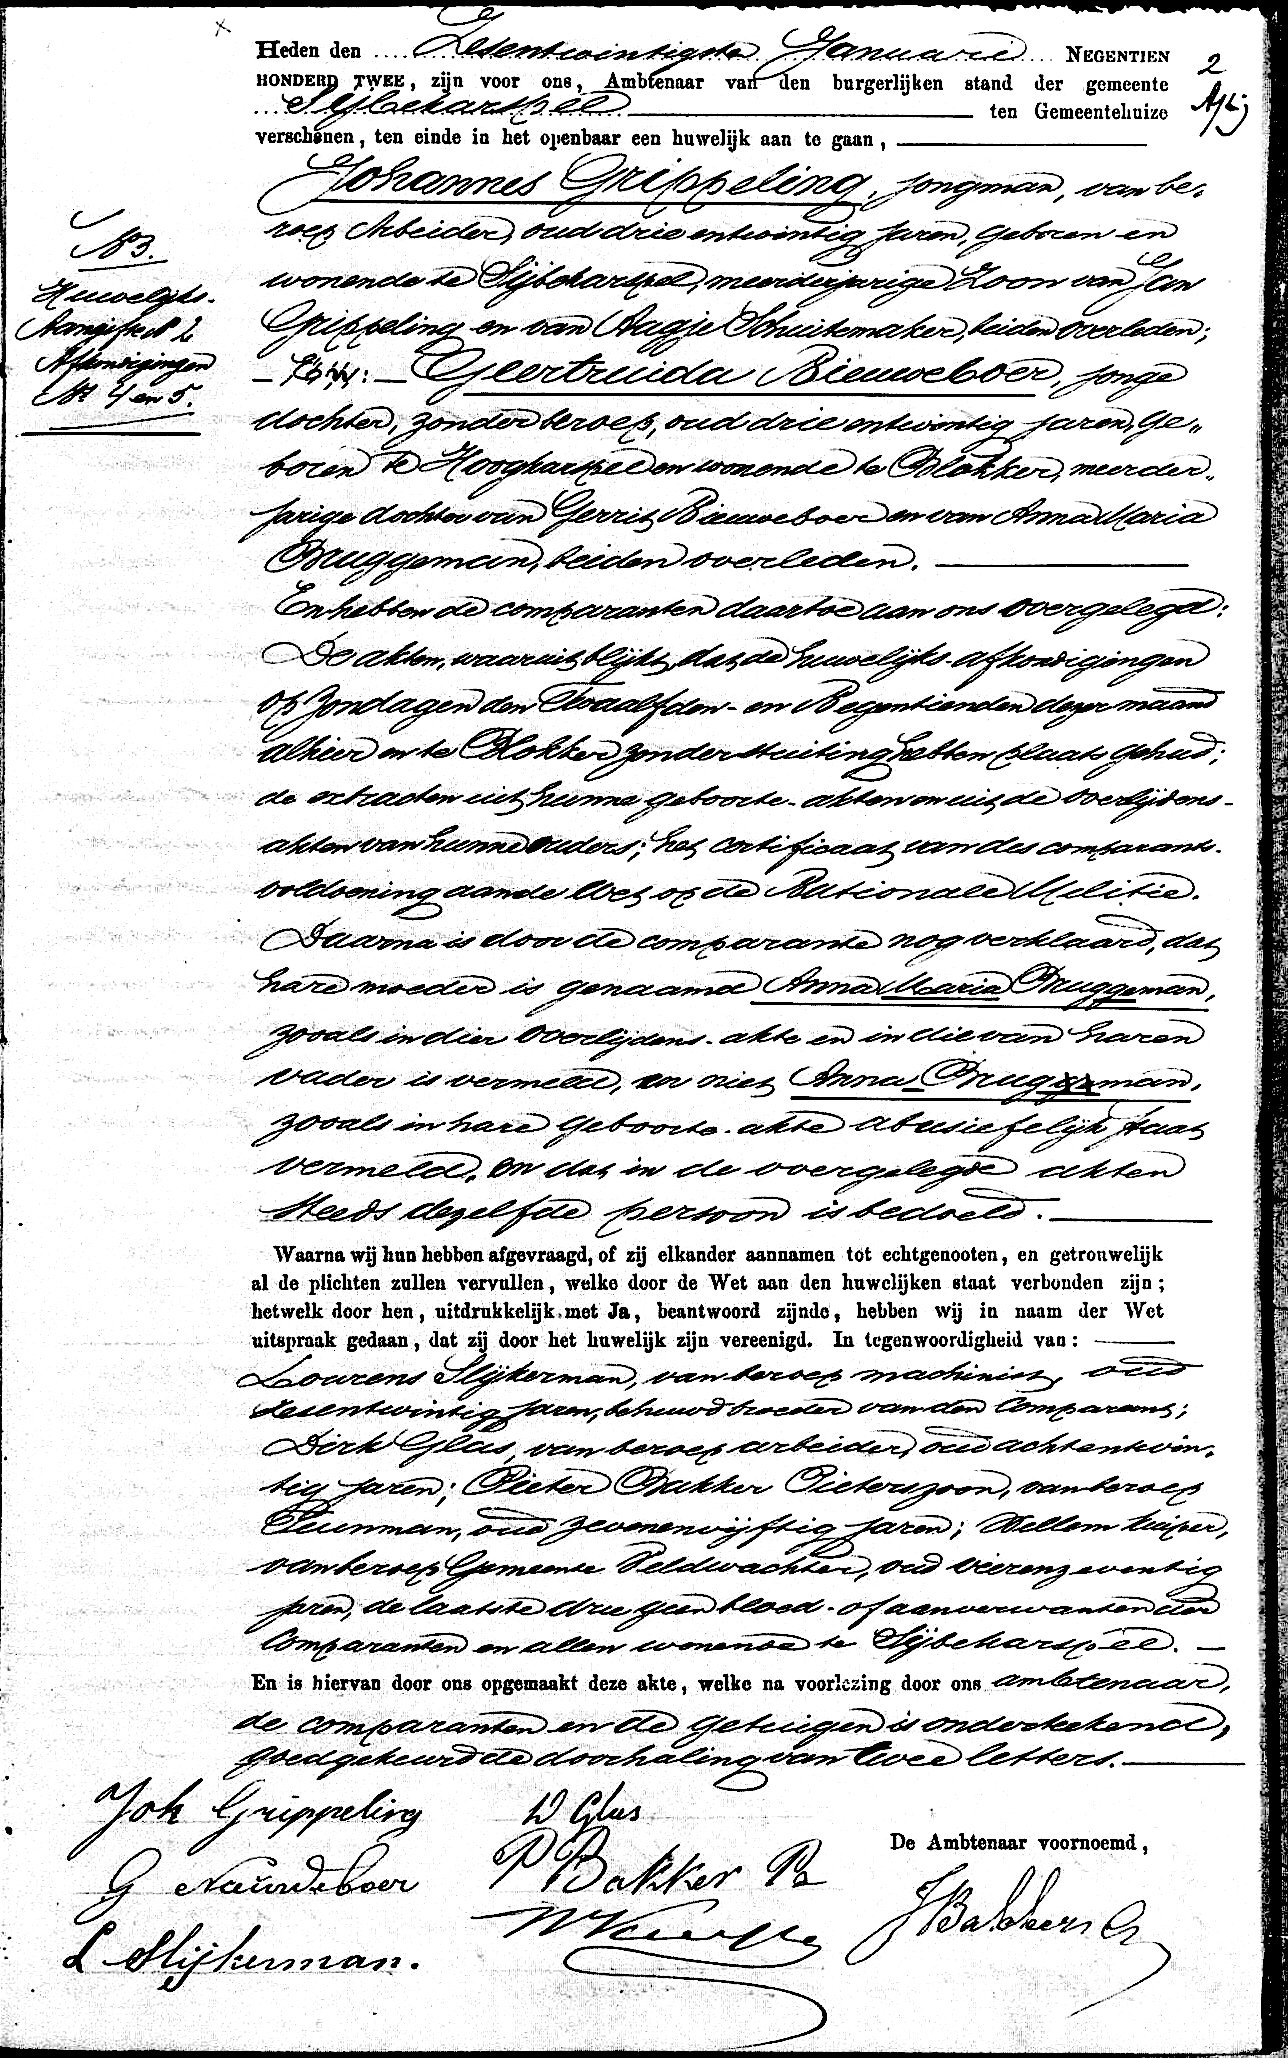 Heden den Zesentwintigste Januari NEGENTIEN
HONDERD TWEE, zijn voor ons, Ambtenaar van den burgerlijken stand der gemeente
Sijbekarspel ten Gemeentehuize
verschenen, ten einde in het openbaar een huwelijk aan te gaan,
2
Johannes Grippeling, jongman, van be-
roep Arbeider, oud drie entwintig jaren, geboren en
wonende te Sijbekarspel, meerderjarige Zoon van Jan
Grippeling en van Aagje Schuitemaker, beiden overleden;
Geertruida Nieuweboer, jonge
dochter, zonder beroep, oud drie entwintig jaren, ge-
boren te Hoogkarspel en wonende te Blokker, meerder-
jarige dochter van Gerrit Nieuweboer en van Anna Maria
Bruggeman, beiden overleden.
N 3.
Huwelijks-
Aangifte N 2
Afkondigingen
N 4 en 5.
En hebben de comparanten daartoe aan ons overgelegd:
De akten, waaruit blijkt, dat de huwelijks-afkondigingen
op Zondagen den Twaalfden- en Negentienden dezer maand
alhier en te Blokker zonder stuiting hebben plaats gehad;
de extracten uit hunne geboorte-akten en uit de overlijdens-
akten van hunne ouders; het certificaat van des comparants-
voldoening aan de Wet op de Nationale Militie.
Daarna is door de comparante nog verklaard, dat
hare moeder is genaamd Anna Maria Bruggeman,
zooals in dier overlijdens-akte en in die van haren
vader is vermeld, en niet Anna Bruggeman,
zooals in hare geboorte-akte abusiefelijk staat
vermeld, en dat in de overgelegde akten
steeds dezelfde persoon is bedoeld.
Waarna wij hun hebben afgevraagd, of zij elkander aannamen tot echtgenooten, en getrouwelijk
al de plichten zullen vervullen, welke door de Wet aan den huwelijken staat verbonden zijn;
hetwelk door hen, uitdrukkelijk met Ja, beantwoord zijnde, hebben wij in naam der Wet
uitspraak gedaan, dat zij door het huwelijk zijn vereenigd. In tegenwoordigheid van:
Lourens Slijkerman, van beroep machinist, oud
zesentwintig jaren, behuwd broeder van den Comparant;
Dirk Glas, van beroep arbeider, oud achtentwin-
tig jaren; Pieter Bakker Pieterszoon, van beroep
Tuinman, oud zevenenvijftig jaren; Willem Kuiper,
van beroep Gemeente Veldwachter, oud vierenzeventig
jaren, de laatste drie geen bloed- of aanverwanten der
Comparanten en allen wonende te Sijbekarspel.
En is hiervan door ons opgemaakt deze akte, welke na voorlezing door ons ambtenaar,
de comparanten en de getuigen is onderteekend,
goedgekeurd de doorhaling van twee letters.
Joh Grippeling
G Nieuwdeboer
L Slijkerman.
D Glas
P Bakker Pz
W Kuiper
De Ambtenaar voornoemd,